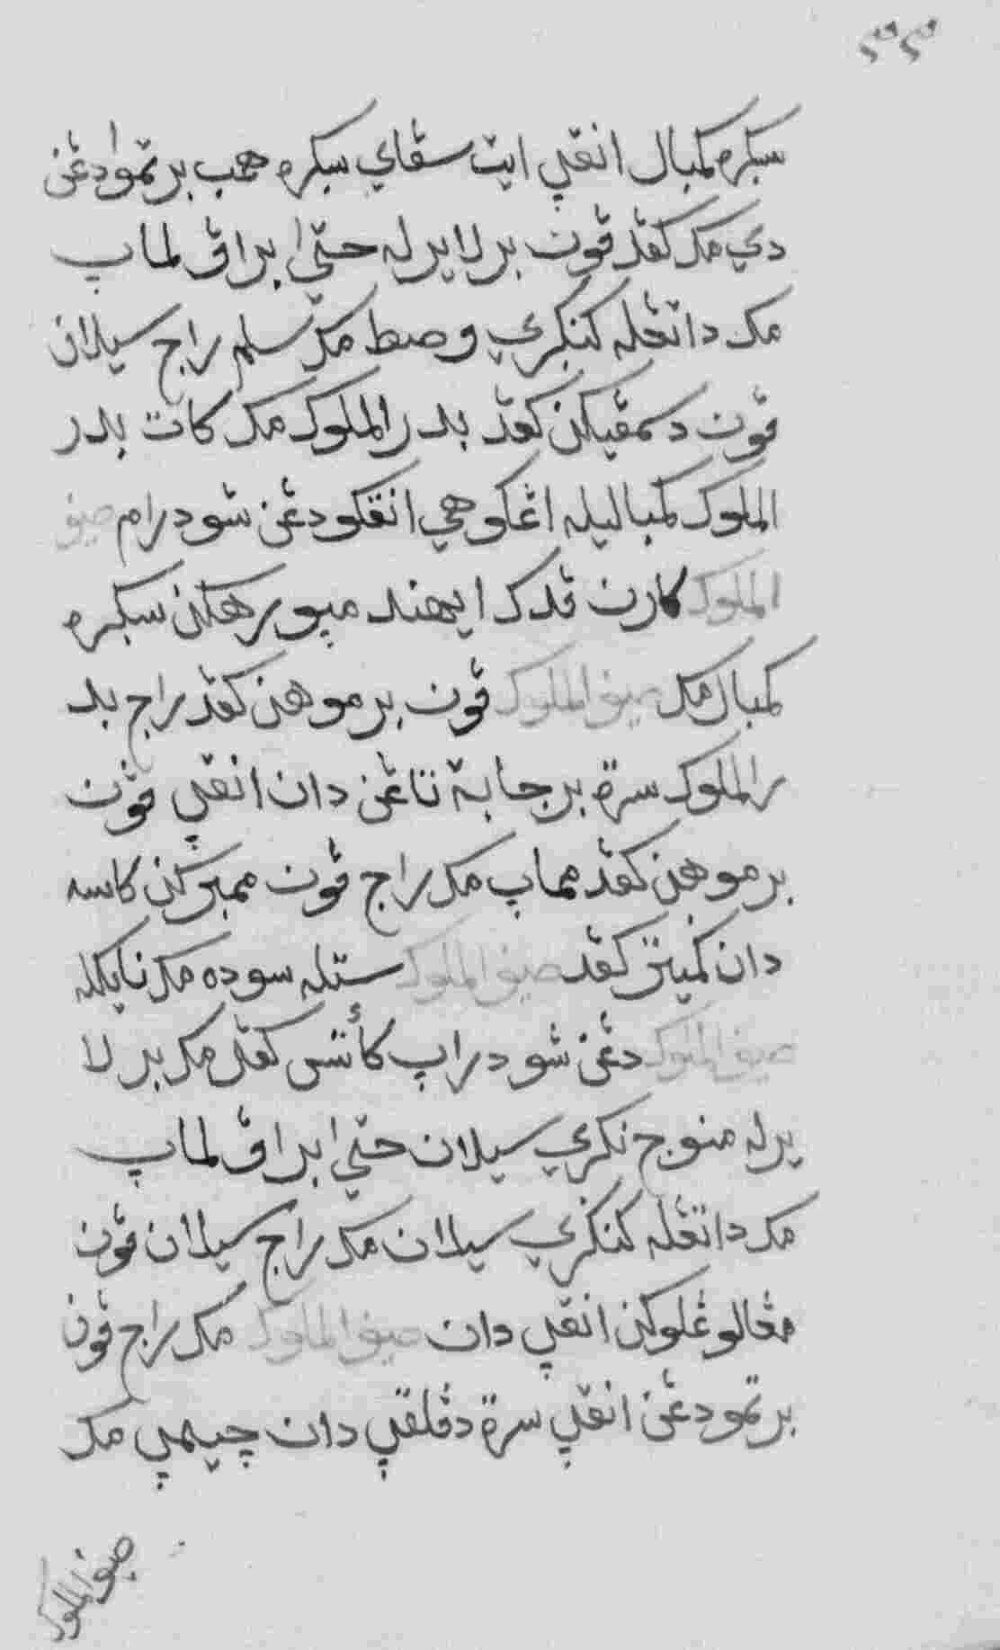 ٣٣
سݢره کمبال انقڽ ايت سڤاي سݢره همب برتمو دڠن
دي مک کفد ڤون برلايرله حتى ابراڤ لماڽ
مک داتڠله کنݢري وصط مک سلم راج سيلان
ڤون دسمڤيکن کفد بدر الملوک مک کات بدر
الملوک کمباليله اڠکو هي انقکو دڠن سودرام صيف
الملوک کارن تيدق ايهند ممبوبرهکن سݢره
کمبال مک صيف الملوک ڤون برموهن کفد راج بد
ر الملوک سرة برجابة تاڠن دان انقڽ ڤون
برموهن کفد بماڽ مک راج ڤون ممبريکن کاسه
دان کمبتن کفد صيف الملوک ستله سوده مک نايکله
صيف الملوک دڠن سودراڽ کأتس کفل مک برلا
يرله منوج نݢري سيلان حتى ابراڤ لماڽ
مک داتڠله کنݢري سيلان مک راج سيلان ڤون
مڠالوڠلوکن انقڽ دان صيف الملوک مک راج ڤون
برتمو دڠن انقڽ سرة دڤلقڽ دان چيمڽ مک
صيف الملوک